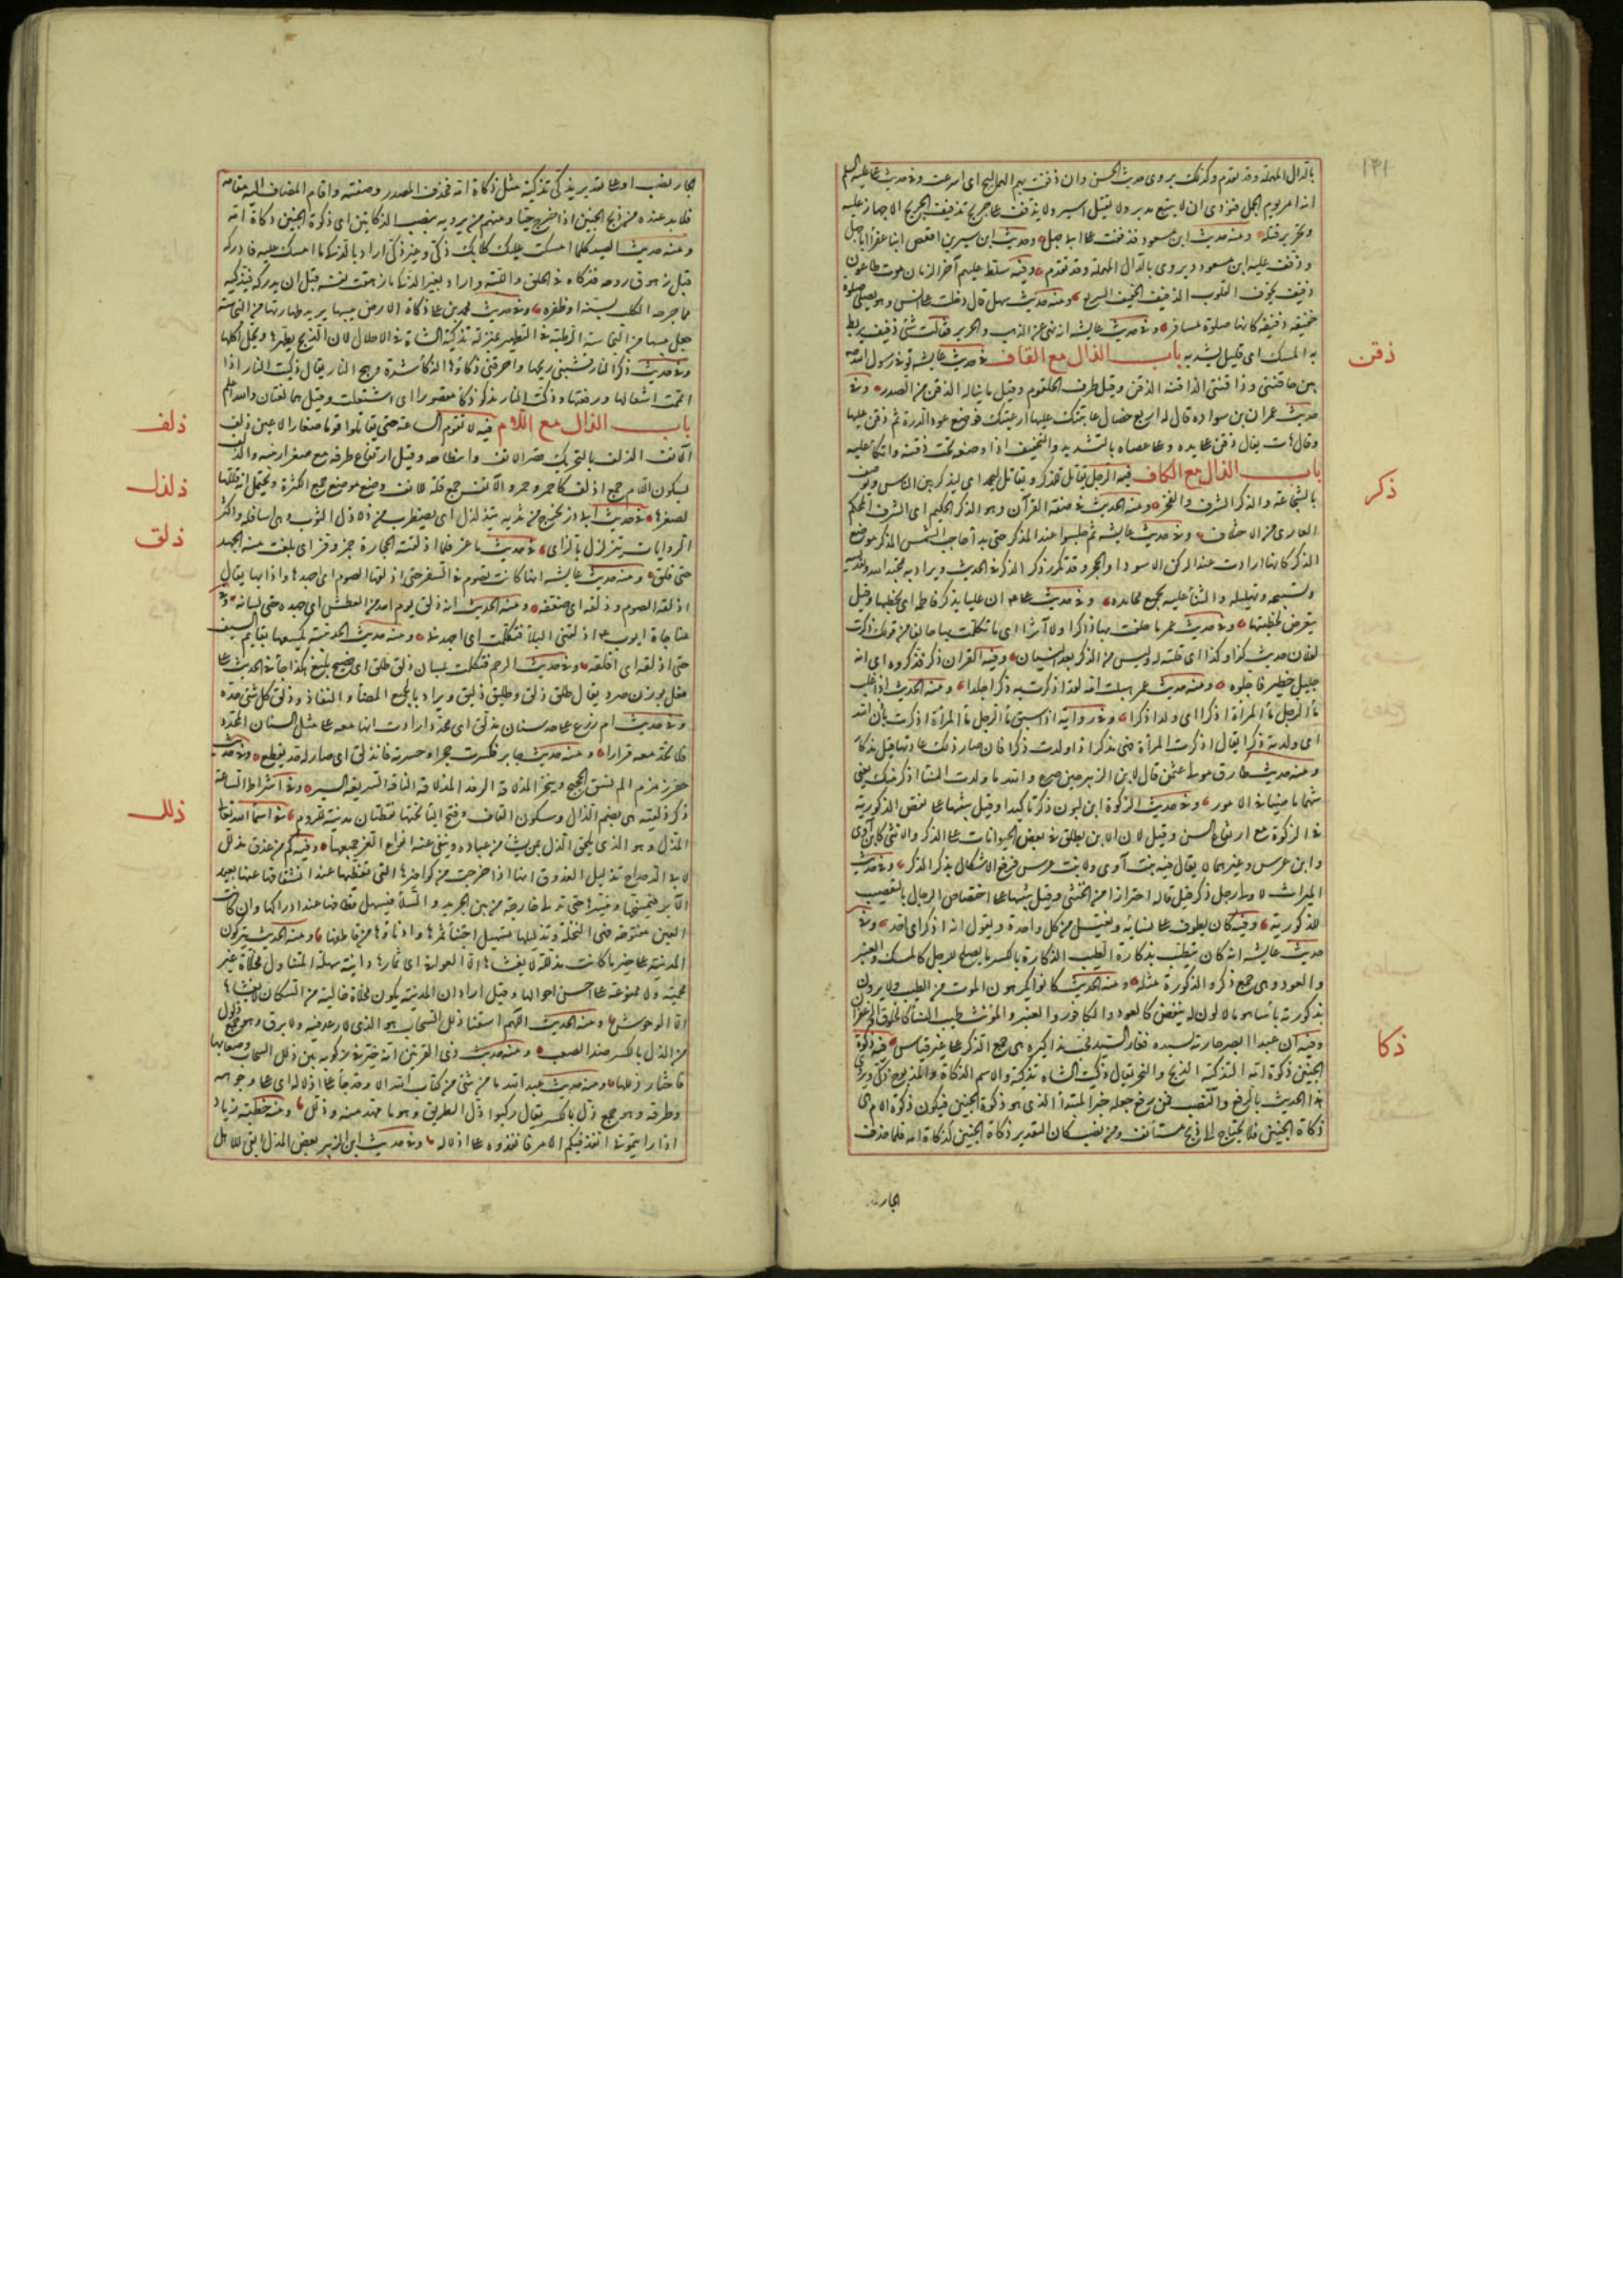 ١٣١
بالدال المهملة وقد تقدم وكذلك يروى حديث الحسن وان ذففت بهم الهماليج اى اسرعت وفى حديث على عليه السلم
انه امر يوم الجمل فنودى ان لا يتبع مدبر ولا يقتل اسير ولا يذفف على جريح تذفيف الجريح الاجهاز عليه
وتحرير قتله ومنه حديث ابن مسعود فذففت على ابى جهل وحديث ابن سيرين اقعص ابنا عفرا ابا جهل
وذفف عليه ابن مسعود ويروى بالدال المهملة وقد تقدم وفيه سلط عليهم آخر الزمان موت طاعون
ذفيف يحوف القلوب الذفيف الخفيف السريع ومنه حديث سهل قال دخلت على انس وهو يصلى صلوة
خفيفة ذفيفة كانها صلوة مسافر وفى حديث عايشة انه نهى عن الذهب والحرير فقالت شئ ذفيف يربط
به المسك اى قليل يشد به باب الذال مع القاف فى حديث عايشة توفى رسول الله
بين حاقنتى وذاقنتى الذاقنة الذقن وقيل طرف الحلقوم وقيل ما يناله الذقن من الصدر وفى
حديث عمران بن سوادة قال له اربع خصال عاتبتك عليها رعيتك فوضع عود الدرة ثم ذقن عليها
وقال هات يقال ذقن على يده وعلى عصاه بالتشديد والتخفيف اذا وضعه تحت ذقنه واتكأ عليه
باب الذال مع الكاف فيه الرجل يقاتل للذكر ويقاتل ليحمد اى ليذكر بين الناس ويوصف
بالشجاعة والذكر الشرف والفخر ومنه الحديث فى صفة القرآن وهو الذكر الحكيم اى الشرف المحكم
العارى من الاختلاف وفى حديث عايشة ثم جلسوا عند المذكر حتى بدا حاجب الشمس المذكر موضع
الذكر كانها ارادت عند الركن الاسود او الحجر وقد تكرر ذكر الذكر فى الحديث ويراد به تمجيد الله وتقديسه
وتسبيحه وتهليله والثنا عليه بجميع محامده وفى حديث على ان عليا يذكر فاطمة اى يخطبها وقيل
يتعرض لخطبتها وفى حديث عمر ما حلفت بها ذاكرا ولا آثرا اى ما تكلمت بها حالفا من قولك ذكرت
لفلان حديث كذا وكذا اى قلته له وليس من الذكر بعد النسيان وفيه القرآن ذكر فذكروه اى انه
جليل خطير فاجلوه ومنه حديث عمر هبلت امه لقد اذكرت به ذكرا جلدا ومنه الحديث اذا غلب
ماء الرجل ماء المرأة اذكرا اى ولدا ذكرا وفى رواية اذا سبق ماء الرجل ماء المرأة اذكرت باذن الله
اى ولدته ذكرا يقال اذكرت المرأة فهى مذكر اذا ولدت ذكرا فان صار ذلك عادتها قيل مذكار
ومنه حديث طارق مولى عثمن قال لابن الزبير حين صرع والله ما ولدت النسا اذكر منك يعنى
شهما ماضيا فى الامور وفى حديث الزكوة ابن لبون ذكر ذكر تاكيدا وقيل تنبيها على نقص الذكورية
فى الزكوة مع ارتفاع السن وقيل لان الابن يطلق فى بعض الحيوانات على الذكر والانثى كابن آوى
وابن عرس وغيرهما لا يقال فيه بنت آوى ولا بنت عرس فرفع الاشكال بذكر الذكر وفى حديث
الميراث لاولى رجل ذكر قيل قاله احترازا من الخنثى وقيل تنبيها على اختصاص الرجال بالتعصيب
للذكورية وفيه كان يطوف على نسائه ويغتسل من كل واحدة ويقول انه اذكر اى احد وفى
حديث عايشة انه كان يتطيب بذكارة الطيب الذكارة بالكسر ما يصلح للرجل كالمسك والعنبر
والعود وهى جمع ذكر والذكورة مثله ومنه الحديث كانوا يكرهون المونث من الطيب ولا يرون
بذكورته باسا هو ما لا لون له ينفض كالعود والكافور والعنبر والمونث طيب النسا كالخلوق والزعفران
وفيه ان عبدا ابصر جارية لسيده فغار السيد فجب مذاكيره هى جمع الذكر على غير قياس فيه ذكوة
الجنين ذكوة امه التذكية الذبح والنحر يقال ذكيت الشاة تذكية والاسم الذكاة والمذبوح ذكى ويروى
هذا الحديث بالرفع والنصب فمن رفع جعله خبر المبتدأ الذى هو ذكوة الجنين فيكون ذكوة الام هى
ذكاة الجنين فلا يحتاج الى ذبح مستأنف ومن نصب كان التقدير ذكاة الجنين كذكاة امه فلما حذف
الجار
ذقن
ذكر
ذكا
الجار نصب او على تقدير يذكى تذكية مثل ذكاة امه فحذف المصدر وصفته واقام المضاف اليه مقامه
فلا بد عنده من ذبح الجنين اذا خرج حيا ومنهم من يرويه بنصب الذكاتين اى ذكوة الجنين ذكاة امه
ومنه حديث الصيد كلما امسكت عليك كلابك ذكى وغير ذكى اراد بالذكى ما امسك عليه فادركه
قبل زهوق روحه فذكاه فى الحلق واللبة واراد بغير الذكى ما زهقت نفسه قبل ان يدركه فيذكيه
مما جرحه الكلب بسنه او ظفره وفى حديث محمد بن على ذكاة الارض يبسها يريد طهارتها من النجاسة
جعل يبسها من النجاسة الرطبة فى التطهير بمنزلة تذكية الشاة فى الاحلال لان الذبح يطهرها ويحل اكلها
وفى حديث ذكر النار قشبنى ريحها واحرقنى ذكاؤها الذكاء شدة وهج النار يقال ذكيت النار اذا
اتممت اشعالها ورفعتها وذكت النار تذكو ذكا مقصورا اى اشتعلت وقيل هما لغتان والله اعلم
باب الذال مع اللام فيه لا تقوم الساعة حتى تقاتلوا قوما صغار الاعين ذلف
الآنف الذلف بالتحريك قصر الانف وانبطاحه وقيل ارتفاع طرفه مع صغر ارنبته والذلف
بسكون اللام جمع اذلف كاحمر وحمر والآنف جمع قلة للانف وضع موضع جمع الكثرة ويحتمل انه قللها
لصغرها فى حديث ابى ذر يخرج من ثديه يتذلذل اى يضطرب من ذلاذل الثوب وهى اسافله واكثر
الروايات يتزلزل بالزاى فى حديث ماعز فلما اذلقته الحجارة جمز وفر اى بلغت منه الجهد
حتى قلق ومنه حديث عايشة انها كانت تصوم فى السفر حتى اذلقها الصوم اى جهدها واذابها يقال
اذلقه الصوم وذلقه اى ضعفه ومنه الحديث انه ذلق يوم احد من العطش اى جهده حتى خرج لسانه وفى
مناجاة ايوب اذلقنى البلاء فتكلمت اى اجهدنى ومنه حديث الحديبية يكسعها بقايم السيف
حتى اذلقه اى اقلقه وفى حديث الرحم فتكلمت بلسان ذلق طلق اى فصيح بليغ هكذا جاء فى الحديث على
فعل بوزن صرد يقال طلق ذلق وطلق ذلق وطليق ذليق ويراد بالجميع المضا والنفاذ وذلق كل شئ حده
وفى حديث ام زرع على حد سنان مذلق اى محدد ارادت انها معه على مثل السنان المحدد
فلا تجد معه قرارا ومنه حديث جابر فكسرت حجرا وحسرته فانذلق اى صار له حد يقطع وفى حديث
حفر زمزم الم نسق الحجيج وننحر المذلاقة الرفد المذلاقة الناقة السريعة السير وفى اشراط الساعة
ذكر ذلقية هى بضم الذال وسكون القاف وفتح اليا تحتها نقطتان مدينة للروم فى اسماء الله تعالى
المذل وهو الذى يلحق الذل بمن يشا من عباده وينفى عنه انواع العز جميعها وفيه كم من عذق مذلل
لابى الدحداح تذليل العذوق انها اذا خرجت من كوافيرها التى تغطيها عند انشقاقها عنها يعمد
الآبر فيسمحها ويبسرها حتى تدلى خارجة من بين الجريد والسلاء فيسهل قطافها عند ادراكها وان كانت
العين مفتوحة فهى النخلة وتذليلها تسهيل اجتناء ثمرها وادناؤها من قاطفها ومنه الحديث يتركون
المدينة على خير ما كانت مذللة لا يغشاها الا العوافى اى ثمارها دانية سهلة المتناول مخلاة غير
محمية ولا ممنوعة على احسن احوالها وقيل اراد ان المدينة يكون مخلاة خالية من السكان لا يغشاها
الا الوحوش ومنه الحديث اللهم اسقنا ذلل السحاب هو الذى لا رعد فيه ولا برق وهو جمع ذلول
من الذل بالكسر ضد الصعب ومنه حديث ذى القرنين انه خير فى ركوبه بين ذلل السحاب وصعابها
فاختار ذللها ومنه حديث عبد الله ما من شئ من كتاب الله الا وقد جاء على اذلاله اى على وجوهه
وطرقه وهو جمع ذل بالكسر يقال ركبوا ذل الطريق وهو ما مهد منه وذلل ومنه خطبة زياد
اذا رايتمونى انفذ فيكم الامر فانفذوه على اذلاله وفى حديث ابن الزبير بعض الذل ابقى للاهل
ذلف
ذلذل
ذلق
ذلل